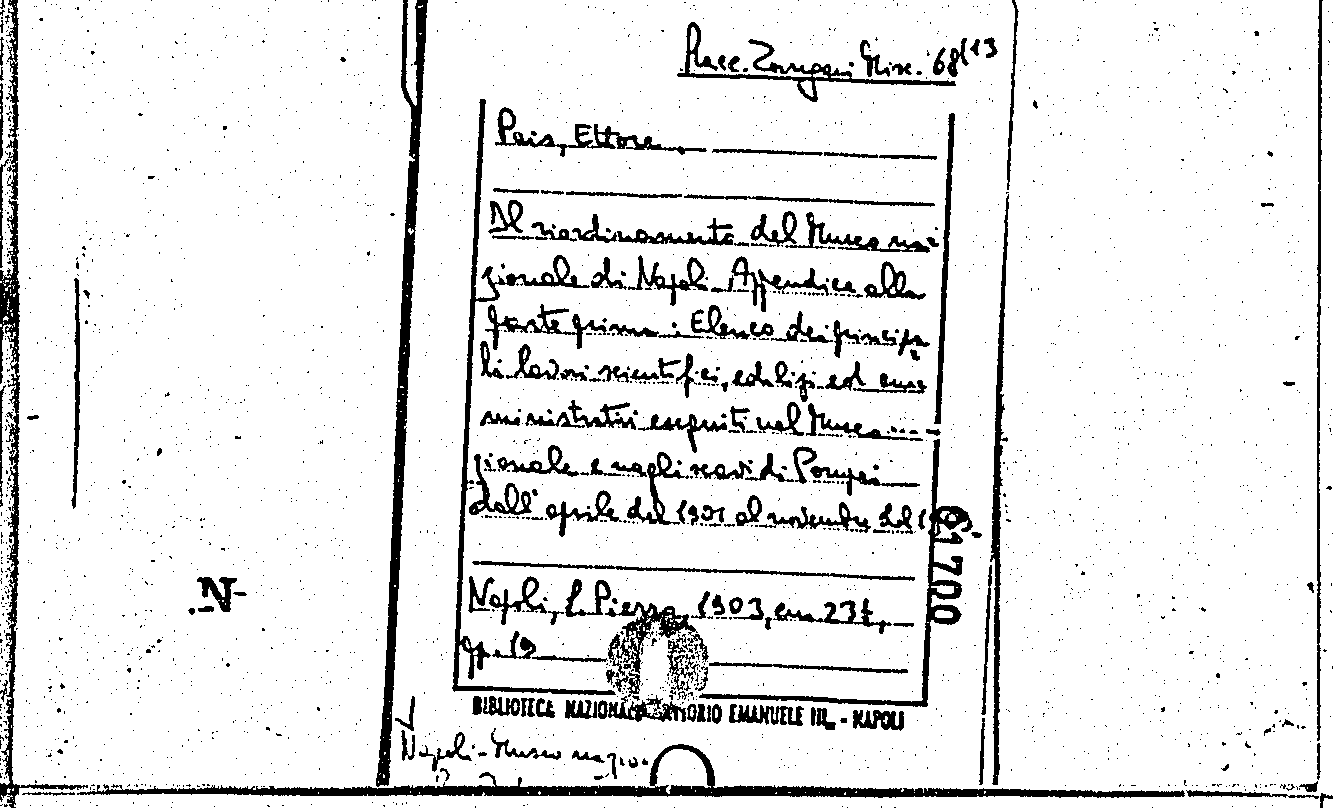 Racc. Zangari Misc. 68(13
Pais, Ettore.
Il riordinamento del Museo na-
zionale di Napoli. Appendice alla
parte prima: Elenco dei principa
li lavori scientifici, edilizi ed am
ministrativi eseguiti nel Museo ....
zionale e negli scavi di Pompei
dall'aprile del 1901 al novembre del
61700
Napoli, Pierro, 1903, cm. 23½,
pp. 19
BIBLIOTECA NAZIONALE VITTORIO EMANUELE III - NAPOLI
Napoli - Museo nazio.
N